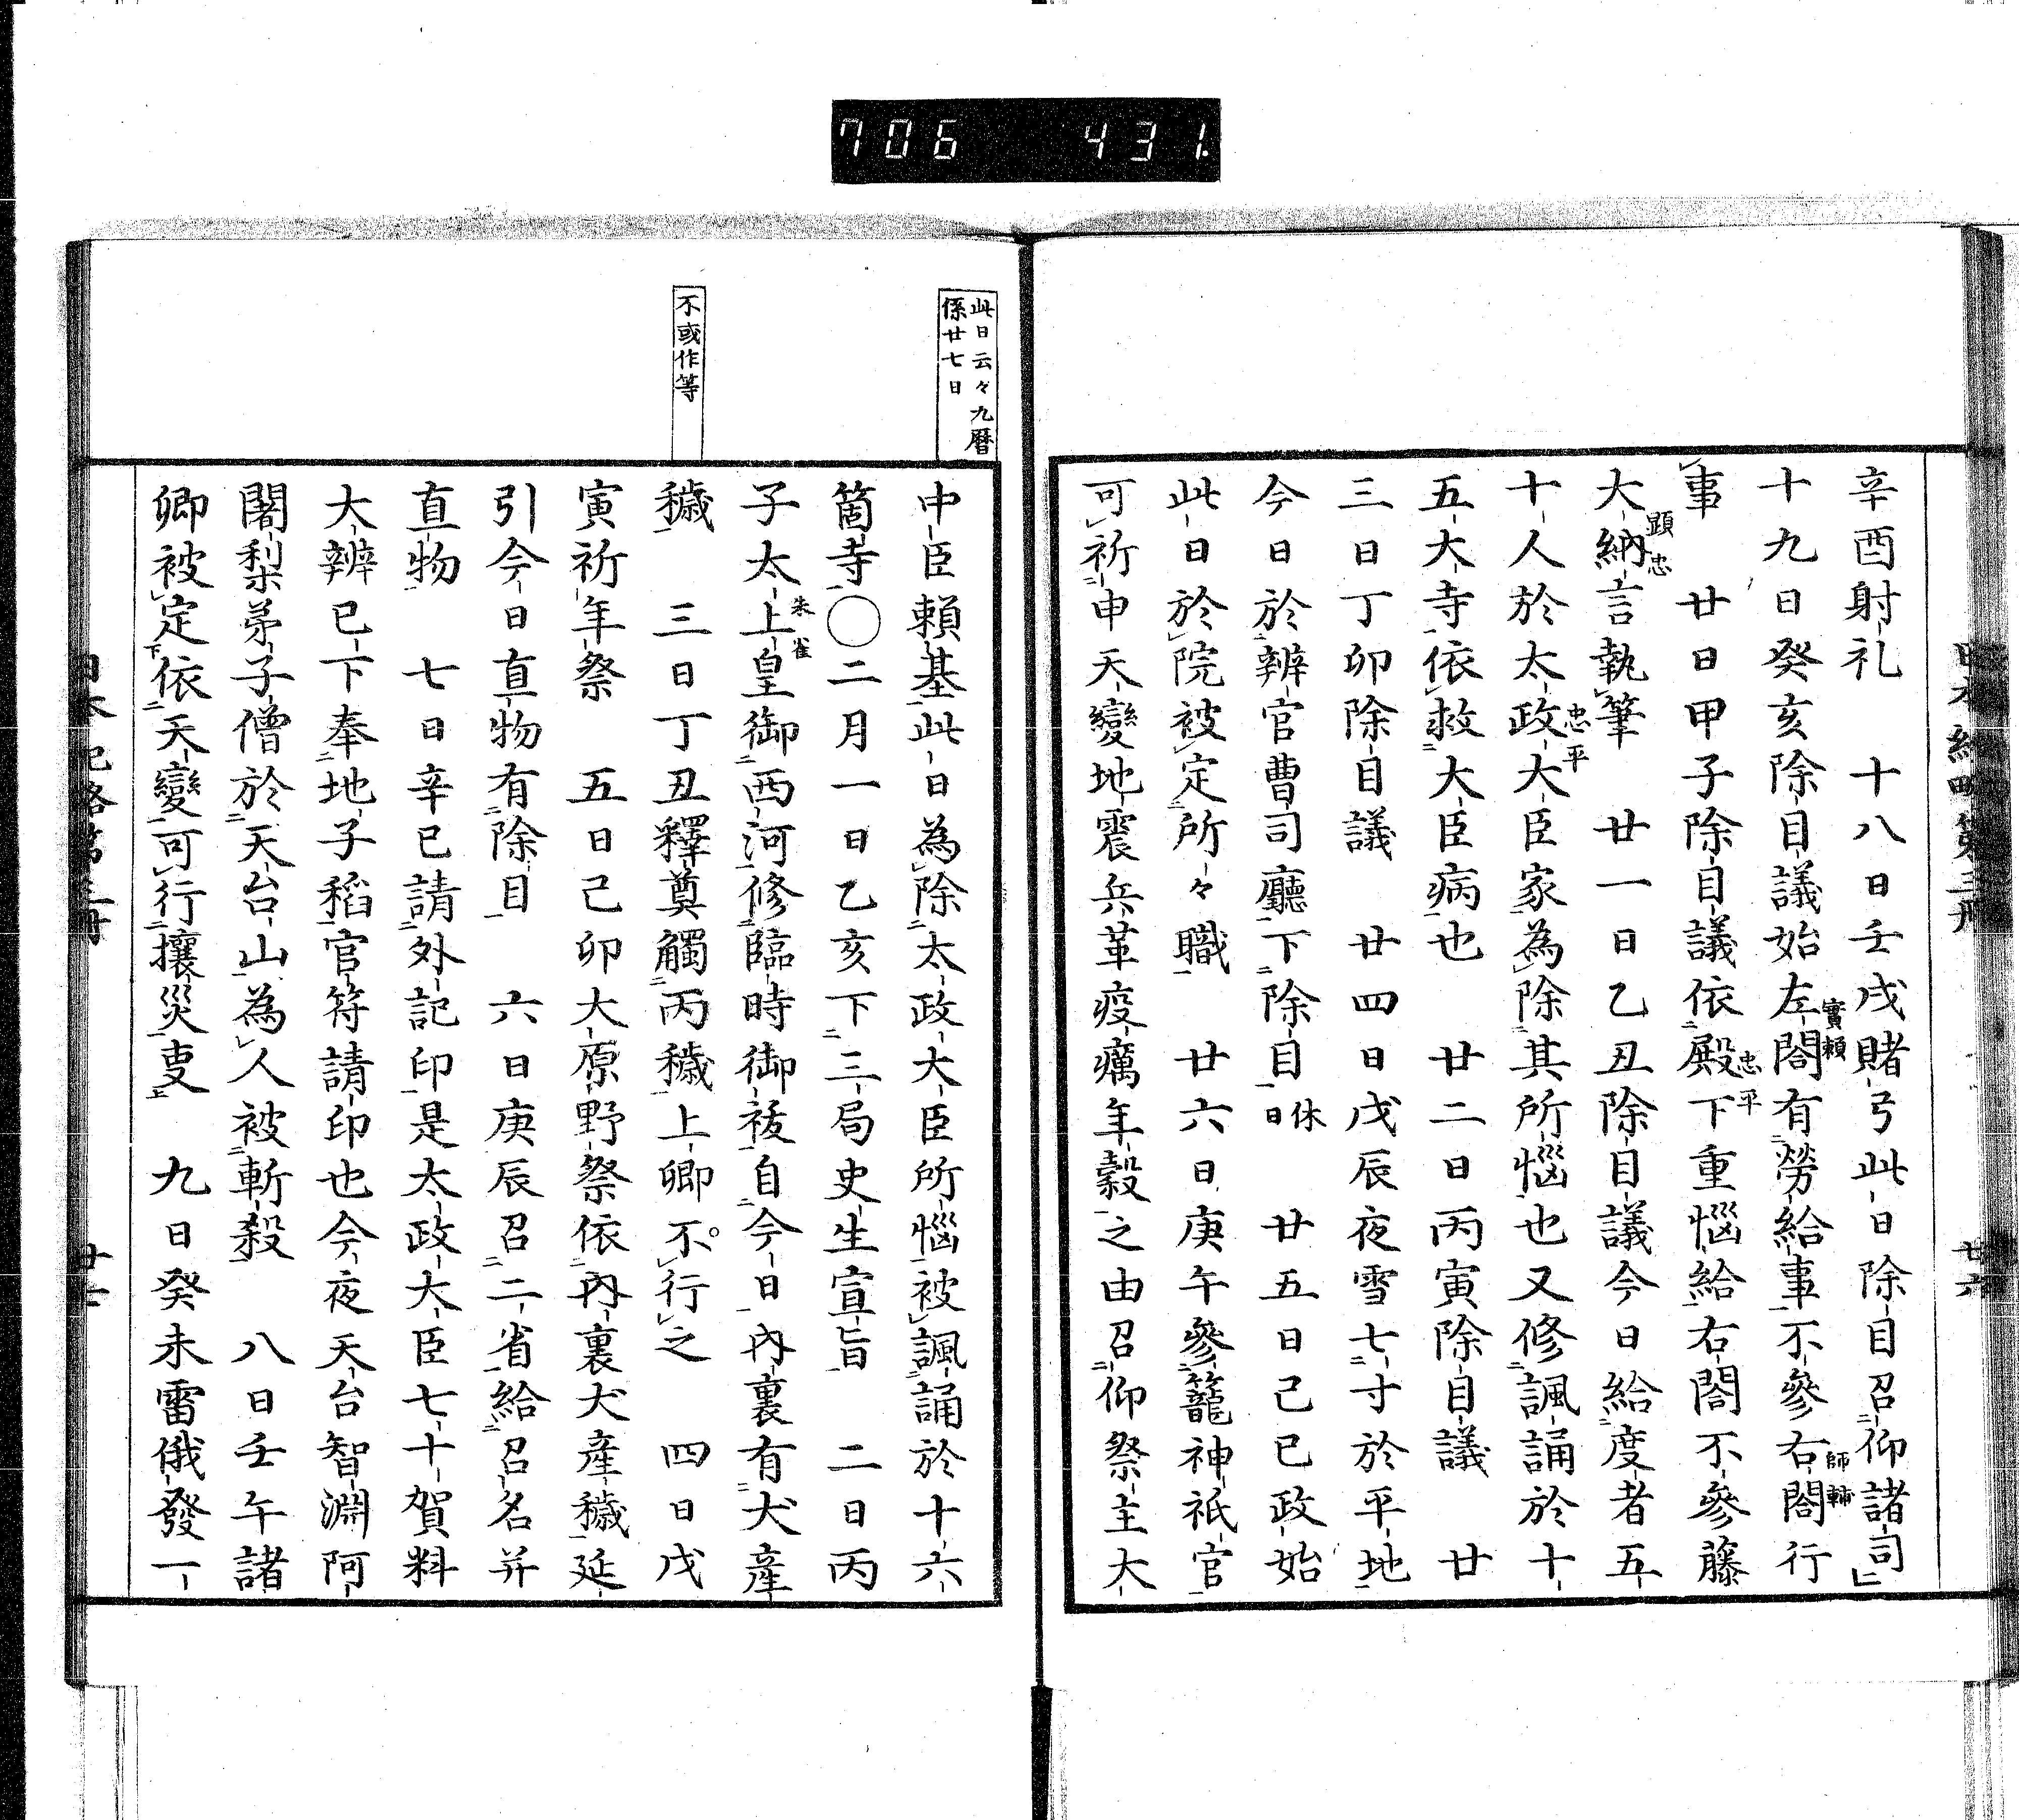 706 431.
日本紀略第三冊 七六
辛酉射礼　十八日壬戌賭弓此日除目召仰諸司
十九日癸亥除目議始左閤實頼有勞給事不參右閤師輔行
事　廿日甲子除目議依殿忠平下重惱給右閤不參藤
大納言顕忠執筆　廿一日乙丑除目議今日給度者五
十人於太政大臣忠平家為除其所惱也又修諷誦於十
五大寺依救大臣病也　廿二日丙寅除目議　廿
三日丁卯除目議　廿四日戊辰夜雪七寸於平地
今日於辨官曹司廳下除目休日　廿五日己巳政始
此日於院被定所々職　廿六日庚午參籠神祇官
可祈申天變地震兵革疫癘年穀之由召仰祭主大
此日云々九暦
係廿七日
不或作等
中臣頼基此日為除太政大臣所惱被諷誦於十六
箇寺〇二月一日乙亥下三局史生宣旨　二日丙
子太上皇朱雀御西河修臨時御祓自今日內裏有犬產
穢　三日丁丑釋奠觸丙穢上卿不行之　四日戊
寅祈年祭　五日己卯大原野祭依內裏犬產穢延
引今日直物有除目　六日庚辰召二省給召名并
直物　七日辛巳請外記印是太政大臣七十賀料
大辨已下奉地子稻官符請印也今夜天台智淵阿
闍梨弟子僧於天台山為人被斬殺　八日壬午諸
卿被定依天變可行攘災叓　九日癸未雷俄發一